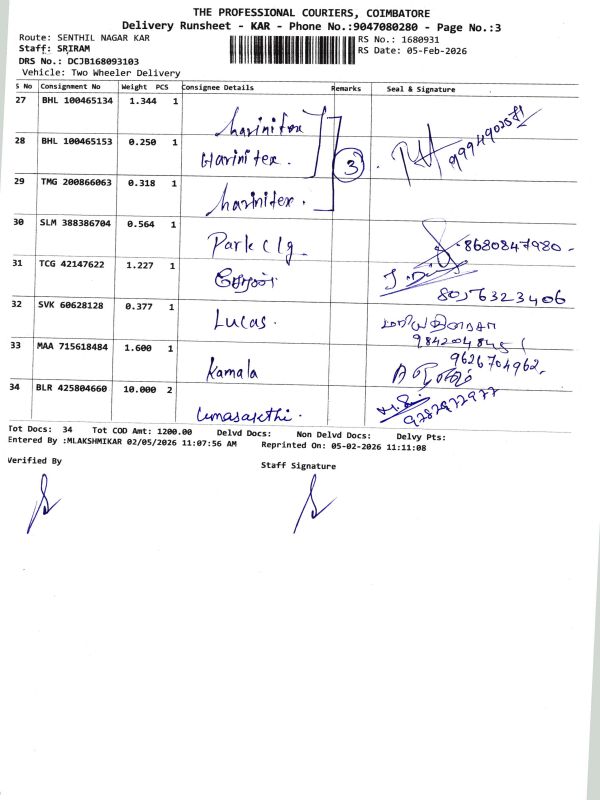 THE PROFESSIONAL COURIERS, COIMBATORE
Delivery Runsheet - KAR - Phone No.:9047080280 - Page No.:3
Route: SENTHIL NAGAR KAR
RS No.: 1680931
Staff: SRIRAM
RS Date: 05-Feb-2026
DRS No.: DCJB168093103
Vehicle: Two Wheeler Delivery
S No Consignment No Weight PCS Consignee Details Remarks Seal & Signature
27 BHL 100465134 1.344 1 harinitex
28 BHL 100465153 0.250 1 Harinitex. 3
29 TMG 200866063 0.318 1 harinitex.
30 SLM 388386704 0.564 1 Park clg 8680847980
31 TCG 42147622 1.227 1 சேரன் 8056323406
32 SVK 60628128 0.377 1 Lucas.
33 MAA 715618484 1.600 1 Kamala 9626704962
34 BLR 425804660 10.000 2 Umasakthi.
Tot Docs: 34 Tot COD Amt: 1200.00 Delvd Docs: Non Delvd Docs: Delvy Pts:
Entered By :MLAKSHMIKAR 02/05/2026 11:07:56 AM Reprinted On: 05-02-2026 11:11:08
Verified By
Staff Signature